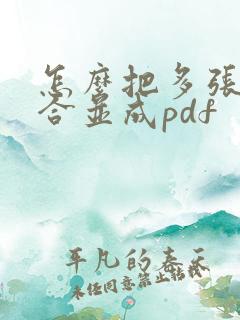 怎麼把多張
合並成pdf
平凡的春天
未經同意禁止轉載